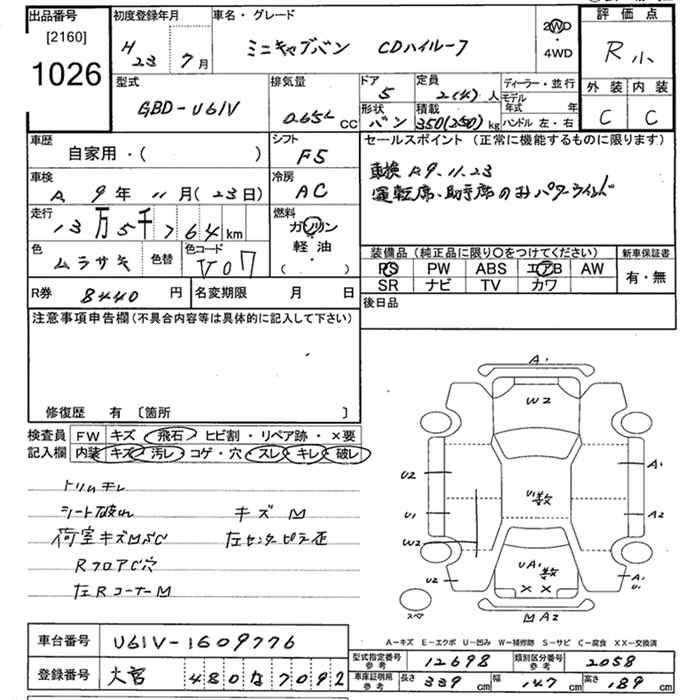 出品番号 初度登録年月 車名・グレード 2WD ・ 4WD 評価点
[2160]
1026
H 23 7月 ミニキャブバン CDハイルーフ R 小
型式 排気量 ドア 5 定員 2(4)人 ディーラー・並行 外装 内装
GBD-U61V 0.65L CC 形状 バン 積載 350(250)kg モデル年式 年 ハンドル 左・右 C C
車歴 シフト セールスポイント(正常に機能するものに限ります)
自家用・( ) F5
車検 R 9年 11月(23日) 冷房 AC 車検 R9.11.23
運転席、助手席のみパワーウインド
走行 13万5千764km 燃料 ガソリン 軽油 ( ・ )
色 ムラサキ 色替 色コード V07
装備品(純正品に限り○をつけてください) 新車保証書
PS PW ABS エアB AW 有・無
SR ナビ TV カワ
R券 8440円 名変期限 月 日 後日品
注意事項申告欄(不具合内容等は具体的に記入して下さい)
修復歴 有 〔箇所 〕
検査員 FW キズ 飛石 ヒビ割・リペア跡・×要
記入欄 内装 キズ 汚レ コゲ・穴 スレ キレ 破レ
トリムヨレ
シート破れ キズM
荷室キズMSC 左センターピラ歪
RフロアC穴
左RコーナーM
A1
W2
U2 A1
U1数
U1 A2
W2
UA1数
U2 ×× A1 U1
スペア MA2
A-キズ E-エクボ U-凹み W-補修跡 S-サビ C-腐食 XX-交換済
車台番号 U61V-1609776
型式指定番号 参考 12698 類別区分番号 参考 2058
登録番号 大宮 480な7092
車庫証明用 参考 長さ 339cm 幅 147cm 高さ 189cm